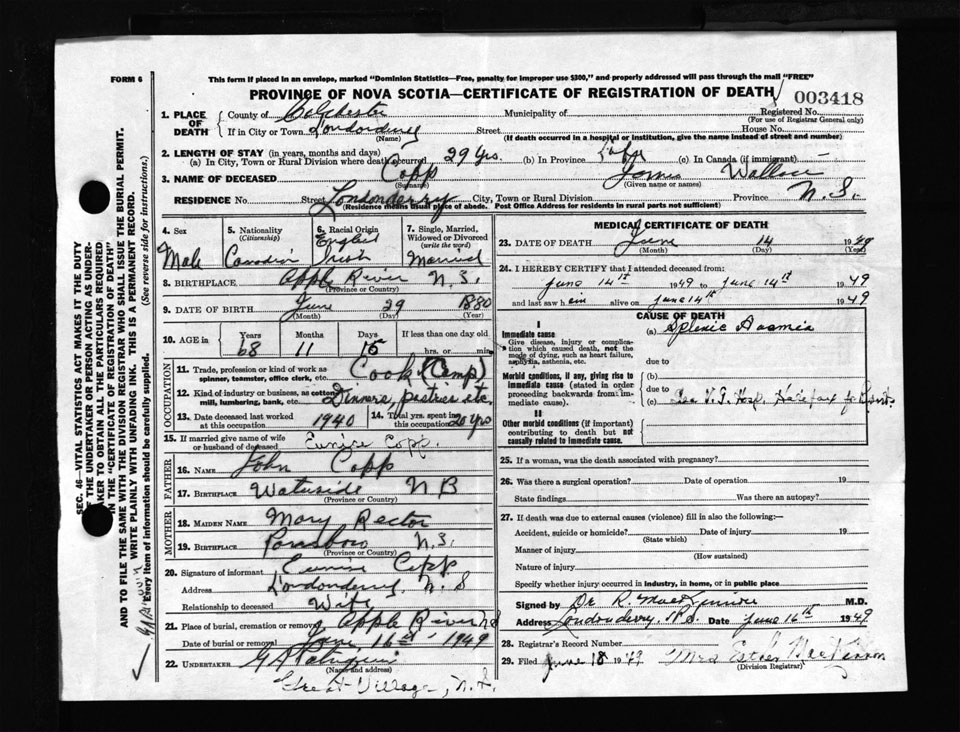 FORM 6
This form if placed in an envelope, marked "Dominion Statistics—Free, penalty for improper use $300," and properly addressed will pass through the mail "FREE"
PROVINCE OF NOVA SCOTIA—CERTIFICATE OF REGISTRATION OF DEATH
003418
SEC. 46—VITAL STATISTICS ACT MAKES IT THE DUTY
OF THE UNDERTAKER OR PERSON ACTING AS UNDER-
TAKER TO OBTAIN ALL THE PARTICULARS REQUIRED
IN THE "CERTIFICATE OF REGISTRATION OF DEATH"
AND TO FILE THE SAME WITH THE DIVISION REGISTRAR WHO SHALL ISSUE THE BURIAL PERMIT.
WRITE PLAINLY WITH UNFADING INK. THIS IS A PERMANENT RECORD.
Every item of information should be carefully supplied. (See reverse side for instructions.)
1. PLACE OF DEATH
County of Colchester Municipality of Registered No.
(For use of Registrar General only)
If in City or Town Londonderry Street House No.
(Name) (If death occurred in a hospital or institution, give the name instead of street and number)
2. LENGTH OF STAY (in years, months and days)
(a) In City, Town or Rural Division where death occurred 29 Yrs. (b) In Province Life (c) In Canada (if immigrant)
3. NAME OF DECEASED Copp James Wallace
(Surname) (Given name or names)
RESIDENCE No. Street Londonderry City, Town or Rural Division Province N.S.
(Residence means usual place of abode. Post Office Address for residents in rural parts not sufficient)
4. Sex Male
5. Nationality (Citizenship) Canadian
6. Racial Origin English Irish
7. Single, Married, Widowed or Divorced (write the word) Married
8. BIRTHPLACE Apple River N.S.
(Province or Country)
9. DATE OF BIRTH June 29 1880
(Month) (Day) (Year)
10. AGE in Years Months Days If less than one day old
68 11 15 hrs. or min.
OCCUPATION
11. Trade, profession or kind of work as spinner, teamster, office clerk, etc. Cook (Camp)
12. Kind of industry or business, as cotton mill, lumbering, bank, etc. Dinners, pastries etc.
13. Date deceased last worked at this occupation 1940
14. Total yrs. spent in this occupation 20 Yrs
15. If married give name of wife or husband of deceased Eunice Copp.
FATHER
16. NAME John Copp
17. BIRTHPLACE Waterside N B
(Province or Country)
MOTHER
18. MAIDEN NAME Mary Rector
19. BIRTHPLACE Parrsboro N.S.
(Province or Country)
20. Signature of informant Eunice Copp
Address Londonderry, N. S
Relationship to deceased Wife
21. Place of burial, cremation or removal Apple River N S
Date of burial or removal June 16th 1949
22. UNDERTAKER
(Name and address)
Great Village, N.S.
MEDICAL CERTIFICATE OF DEATH
23. DATE OF DEATH June 14 1949
(Month) (Day) (Year)
24. I HEREBY CERTIFY that I attended deceased from:
June 14st 1949 to June 14st 1949
and last saw him alive on June 14st 1949
CAUSE OF DEATH
I
Immediate cause
Give disease, injury or complication which caused death, not the mode of dying, such as heart failure, asphyxia, asthenia, etc.
(a) Splenic Anaemia
due to
Morbid conditions, if any, giving rise to immediate cause (stated in order proceeding backwards from immediate cause).
(b)
due to
(c) V.G. Hosp. Halifax for
II
Other morbid conditions (if important) contributing to death but not causally related to immediate cause.
25. If a woman, was the death associated with pregnancy?
26. Was there a surgical operation? Date of operation 19
State findings Was there an autopsy?
27. If death was due to external causes (violence) fill in also the following:—
Accident, suicide or homicide? Date of injury 19
(State which)
Manner of injury
(How sustained)
Nature of injury
Specify whether injury occurred in industry, in home, or in public place
Signed by Dr R. M.D.
Address Londonderry, N.S. Date June 16th 1949
28. Registrar's Record Number
29. Filed June 18 1949 Mrs Esther
(Division Registrar)